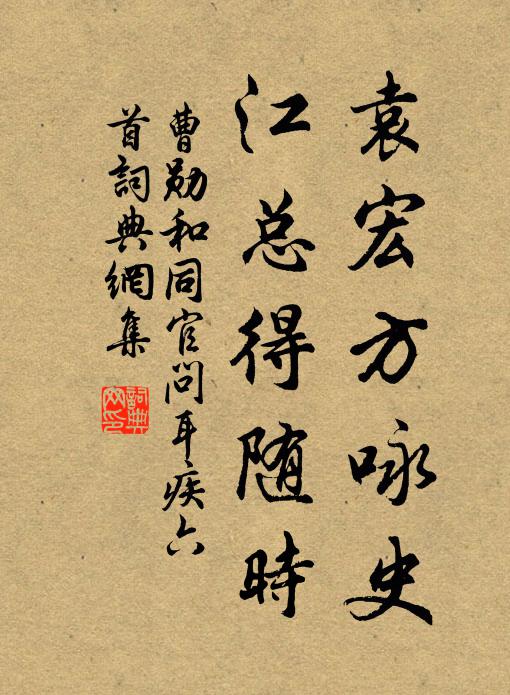 袁宏方咏史
江总得随時
曹勋和同官問耳疾六
首詞典網集
詞典網印